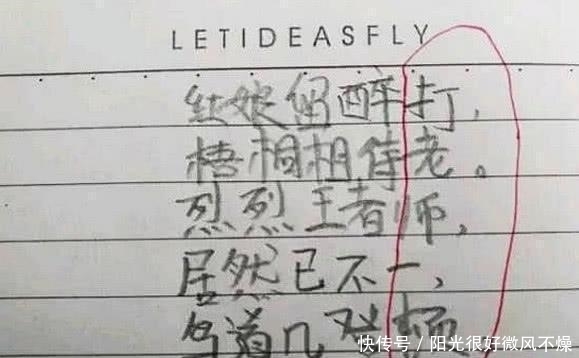 LETIDEASFLY
红娘留醉打,
梧桐相待老。
烈烈王者师,
居然已不一,
道几顿
快传号／阳光很好微风不燥